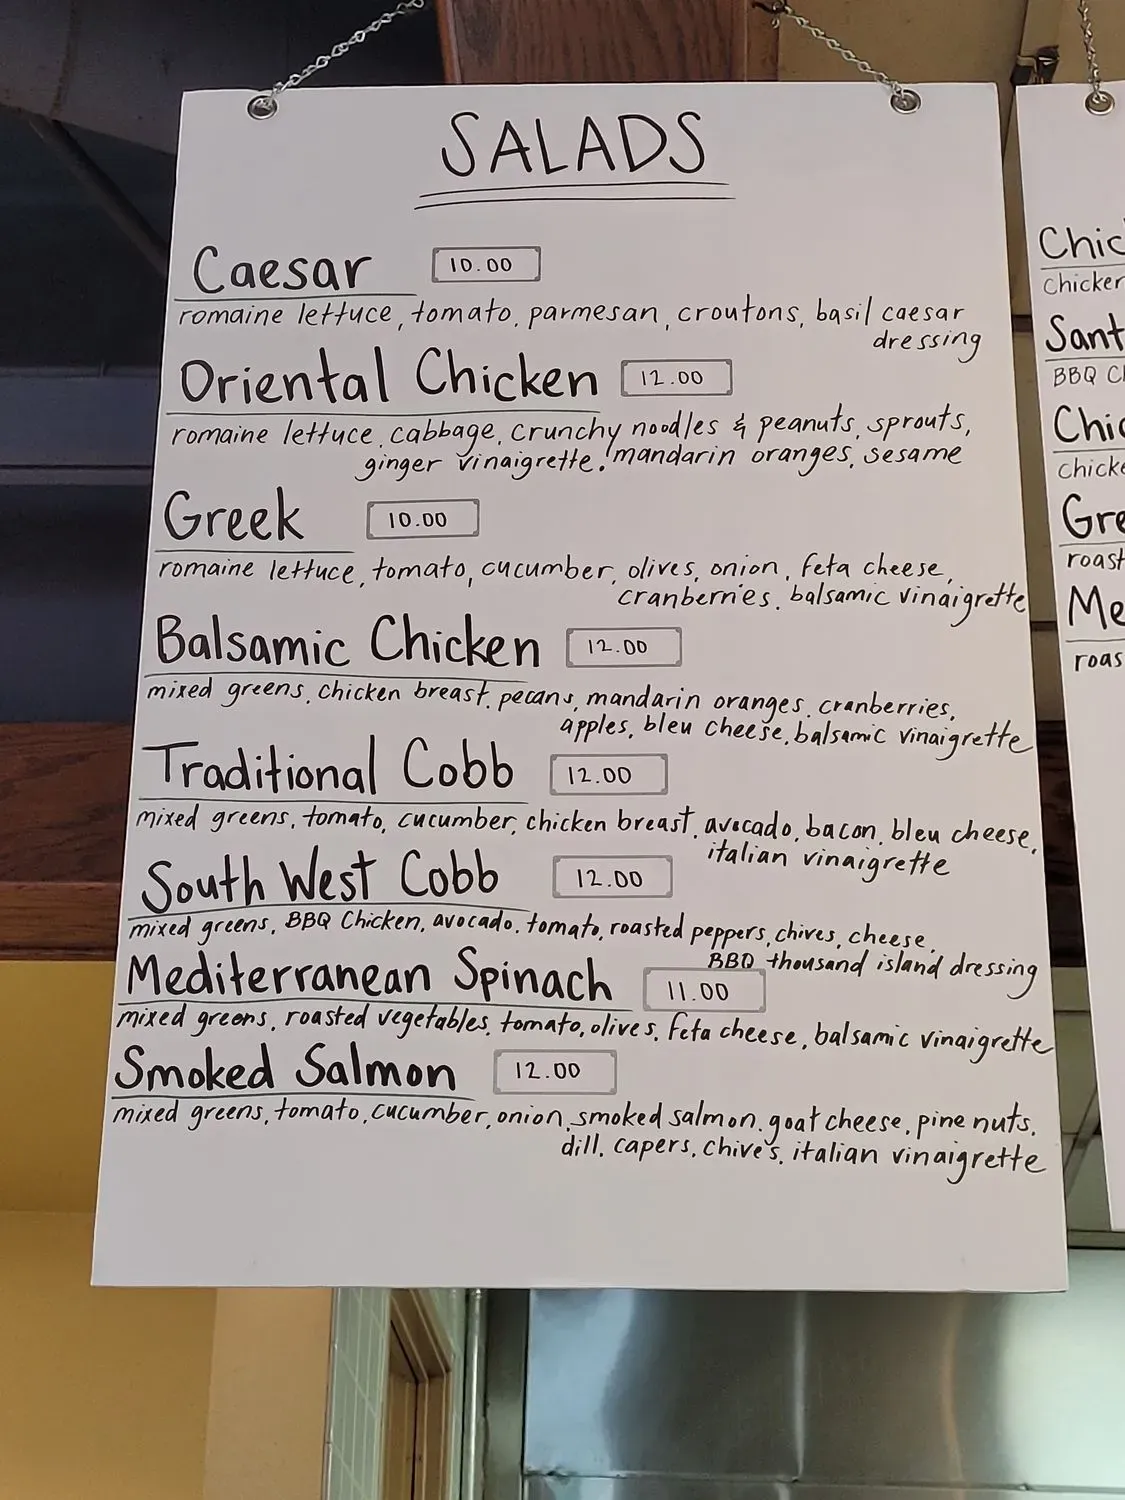 SALADS
Caesar 10.00
romaine lettuce, tomato, parmesan, croutons, basil caesar
dressing
Oriental Chicken 12.00
romaine lettuce, cabbage, crunchy noodles & peanuts, sprouts,
ginger vinaigrette, mandarin oranges, sesame
Greek 10.00
romaine lettuce, tomato, cucumber, olives, onion, feta cheese,
cranberries, balsamic vinaigrette
Balsamic Chicken 12.00
mixed greens, chicken breast, pecans, mandarin oranges, cranberries,
apples, bleu cheese, balsamic vinaigrette
Traditional Cobb 12.00
mixed greens, tomato, cucumber, chicken breast, avocado, bacon, bleu cheese,
italian vinaigrette
South West Cobb 12.00
mixed greens, BBQ Chicken, avocado, tomato, roasted peppers, chives, cheese,
BBQ thousand island dressing
Mediterranean Spinach 11.00
mixed greens, roasted vegetables, tomato, olives, feta cheese, balsamic vinaigrette
Smoked Salmon 12.00
mixed greens, tomato, cucumber, onion, smoked salmon, goat cheese, pine nuts,
dill, capers, chives, italian vinaigrette
Chic
Chicken
Sant
BBQ Ch
Chic
Chicke
Gre
roast
Me
roas